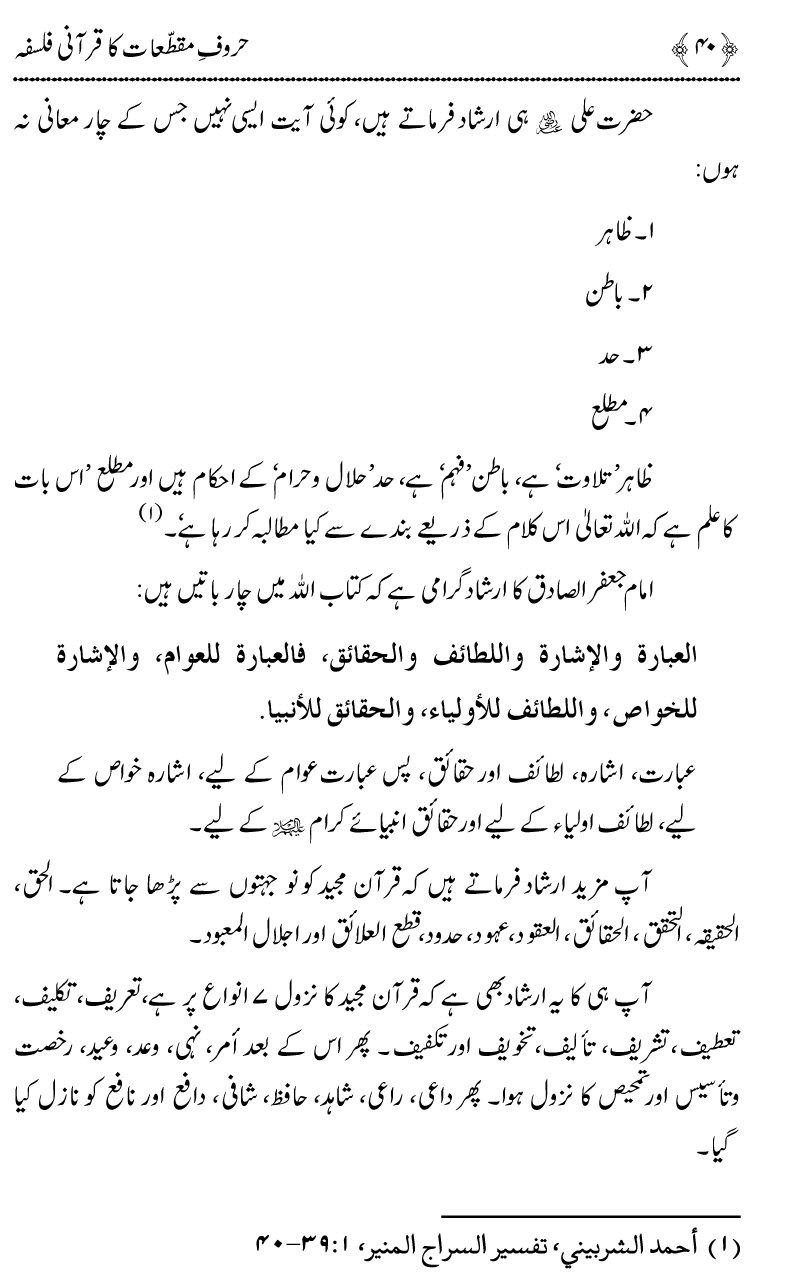 ﴿۴۰﴾ حروفِ مقطّعات کا قرآنی فلسفہ
حضرت علی رضی اللہ عنہ ہی ارشاد فرماتے ہیں، کوئی آیت ایسی نہیں جس کے چار معانی نہ
ہوں:
۱۔ ظاہر
۲۔ باطن
۳۔ حد
۴۔ مطلع
ظاہر ’تلاوت‘ ہے، باطن ’فہم‘ ہے، حد ’حلال و حرام‘ کے احکام ہیں اور مطلع ’اس بات
کا علم ہے کہ اللہ تعالیٰ اس کلام کے ذریعے بندے سے کیا مطالبہ کر رہا ہے‘۔ (۱)
امام جعفر الصادق کا ارشاد گرامی ہے کہ کتاب اللہ میں چار باتیں ہیں:
العبارة والإشارة واللطائف والحقائق، فالعبارة للعوام، والإشارة
للخواص، واللطائف للأولياء، والحقائق للأنبيا.
عبارت، اشارہ، لطائف اور حقائق، پس عبارت عوام کے لیے، اشارہ خواص کے
لیے، لطائف اولیاء کے لیے اور حقائق انبیائے کرام علیہم السلام کے لیے۔
آپ مزید ارشاد فرماتے ہیں کہ قرآن مجید کو نو جہتوں سے پڑھا جاتا ہے۔ الحق،
الحقیقہ، التحقق، الحقائق، العقود، عہود، حدود، قطع العلائق اور اجلال المعبود۔
آپ ہی کا یہ ارشاد بھی ہے کہ قرآن مجید کا نزول ۷ انواع پر ہے، تعریف، تکلیف،
تعطیف، تشریف، تألیف، تخویف اور تکفیف۔ پھر اس کے بعد أمر، نہی، وعد، وعید، رخصت
وتأسیس اور تمحیص کا نزول ہوا۔ پھر داعی، راعی، شاہد، حافظ، شافی، دافع اور نافع کو نازل کیا
گیا۔
(۱) أحمد الشربيني، تفسير السراج المنير، ۱:۳۹–۴۰